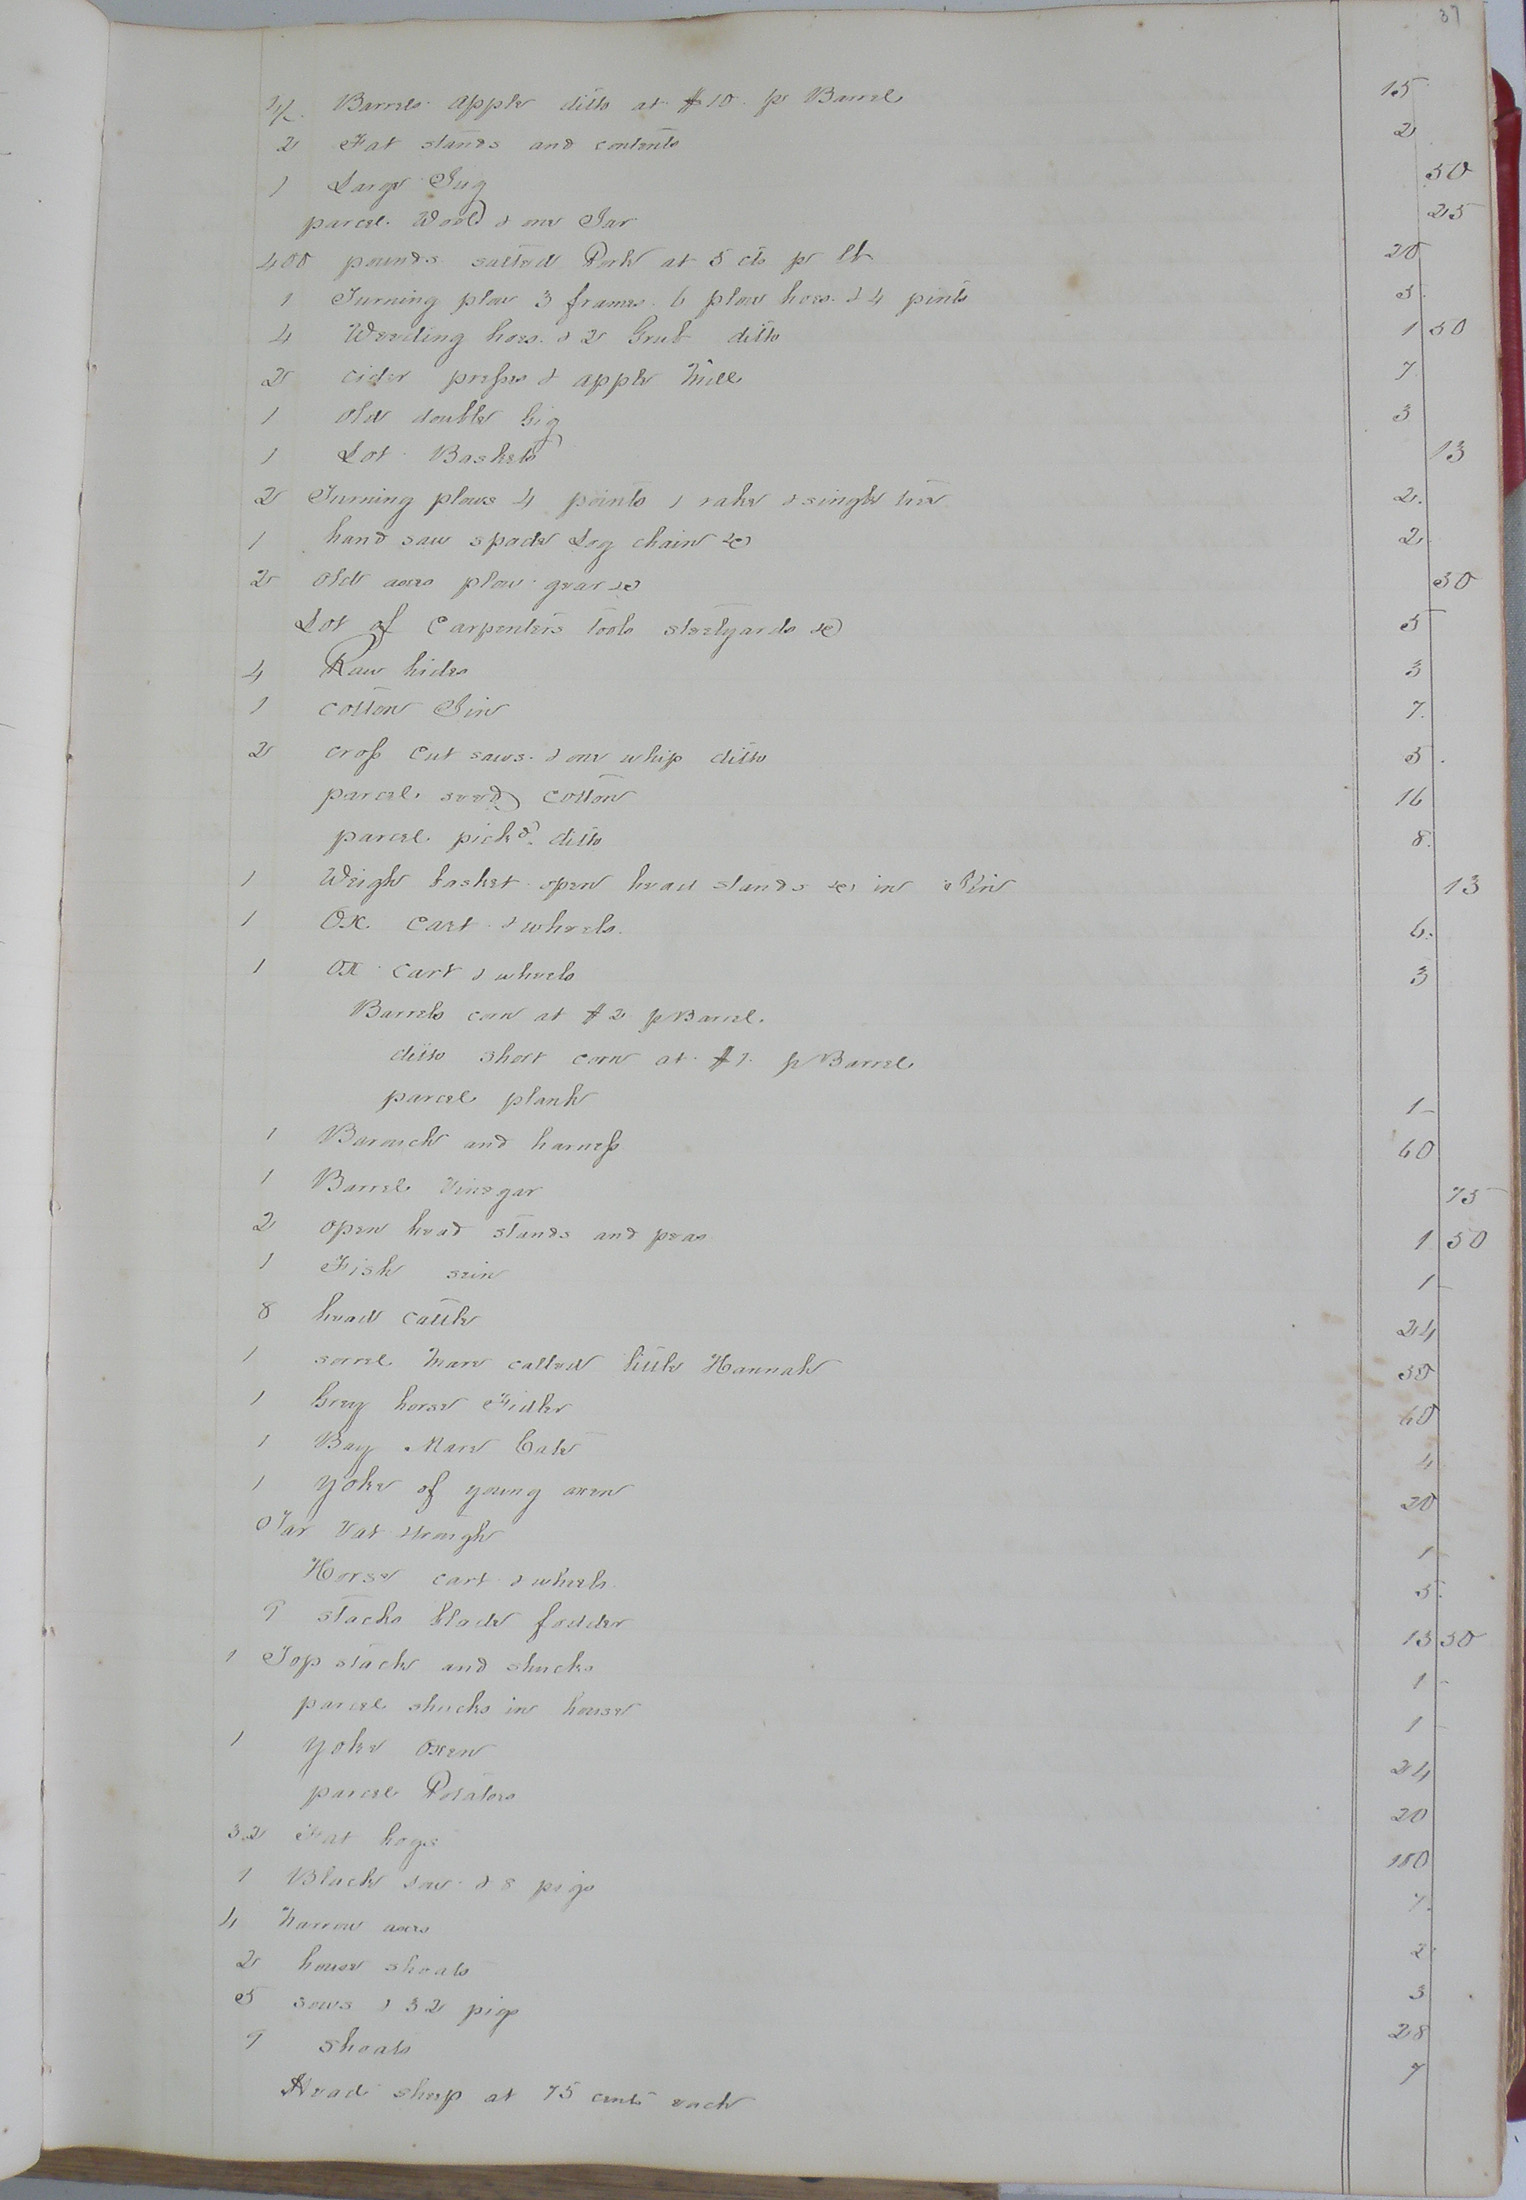 37
1 1/2 Barrels apple ditto at $10 pr Barrel 15
2 Fat stands and contents 2
1 Large Jug 50
parcel Wool & one Jar 25
400 pounds salted Pork at 5 cts pr lb 20
1 Turning plow 3 frames 6 plow hoes & 4 pints 3
4 Weeding hoes & 2 Grub ditto 1 50
2 cider presses & apple mill 7
1 old double Gig 3
1 Lot Baskets 13
2 Turning plows 4 points 1 rake & single tree 2
1 hand saw spade Log chain &c 2
2 old axes plow gear &c 50
Lot of Carpenters tools steelyards &c 5
4 Raw hides 3
1 cotton Gin 7
2 cross cut saws & one whip ditto 5
parcel seed cotton 16
parcel pickd ditto 8
1 Weigh basket open head stands &c in Gin 13
1 Ox Cart & wheels 6
1 Ox cart & wheels 3
Barrels corn at $2 pr Barrel
ditto short corn at $1 pr Barrel
parcel plank 1
1 Barouch and harness 60
1 Barrel Vinegar 75
2 open head stands and peas 1 50
1 Fish sein 1
8 head cattle 24
1 sorrel mare called little Hannah 30
1 Grey horse Fidler 60
1 Bay Mare Cate 4
1 yoke of young oxen 20
Tar Vat & trough 1
Horse cart & wheels 5
9 stacks blade fodder 13 50
1 Top stack and shucks 1
parcel shucks in house 1
1 yoke Oxen 24
parcel Potatoes 20
32 Fat hogs 180
1 Black sow & 8 pigs 7
4 narrow axes 2
2 house shoats 3
5 sows & 32 pigs 28
9 shoats 7
Head sheep at 75 cents each